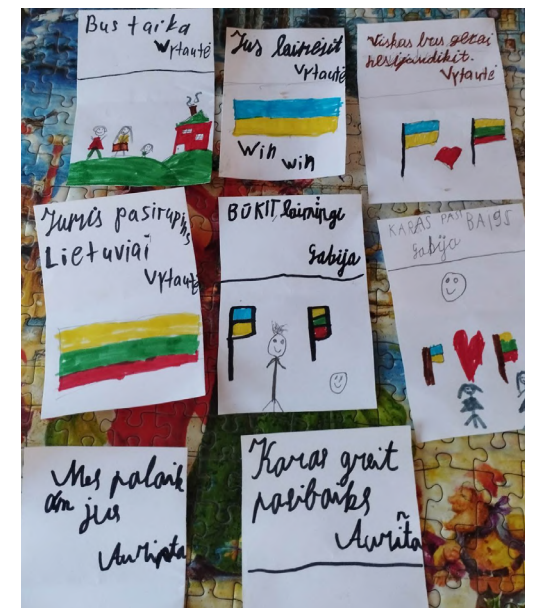 Bus taika
Vytautė
Jus laimėsit
Vytautė
Win win
Viskas bus gerai
nesijaudikit.
Vytautė
Jumis pasirūpins
Lietuviai
Vytautė
BŪKIT laimingi
Gabija
KARAS PASIBAIGS
Gabija
Mes palaik
om jus
Karas greit
pasibaiks